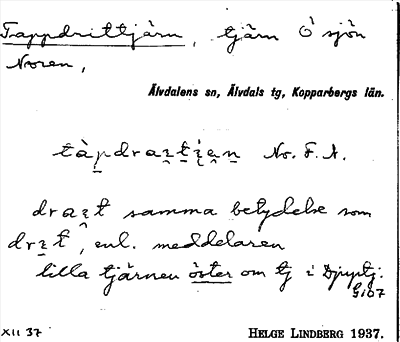 Tappdrittjärn, tjärn Ö sjön
Noren,
Älvdalens sn, Älvdals tg, Kopparbergs län.
No. F. A.
samma betydelse som
enl. meddelaren
lilla tjärnen öster om tj i Djuptj.
XII 37
HELGE LINDBERG 1937.